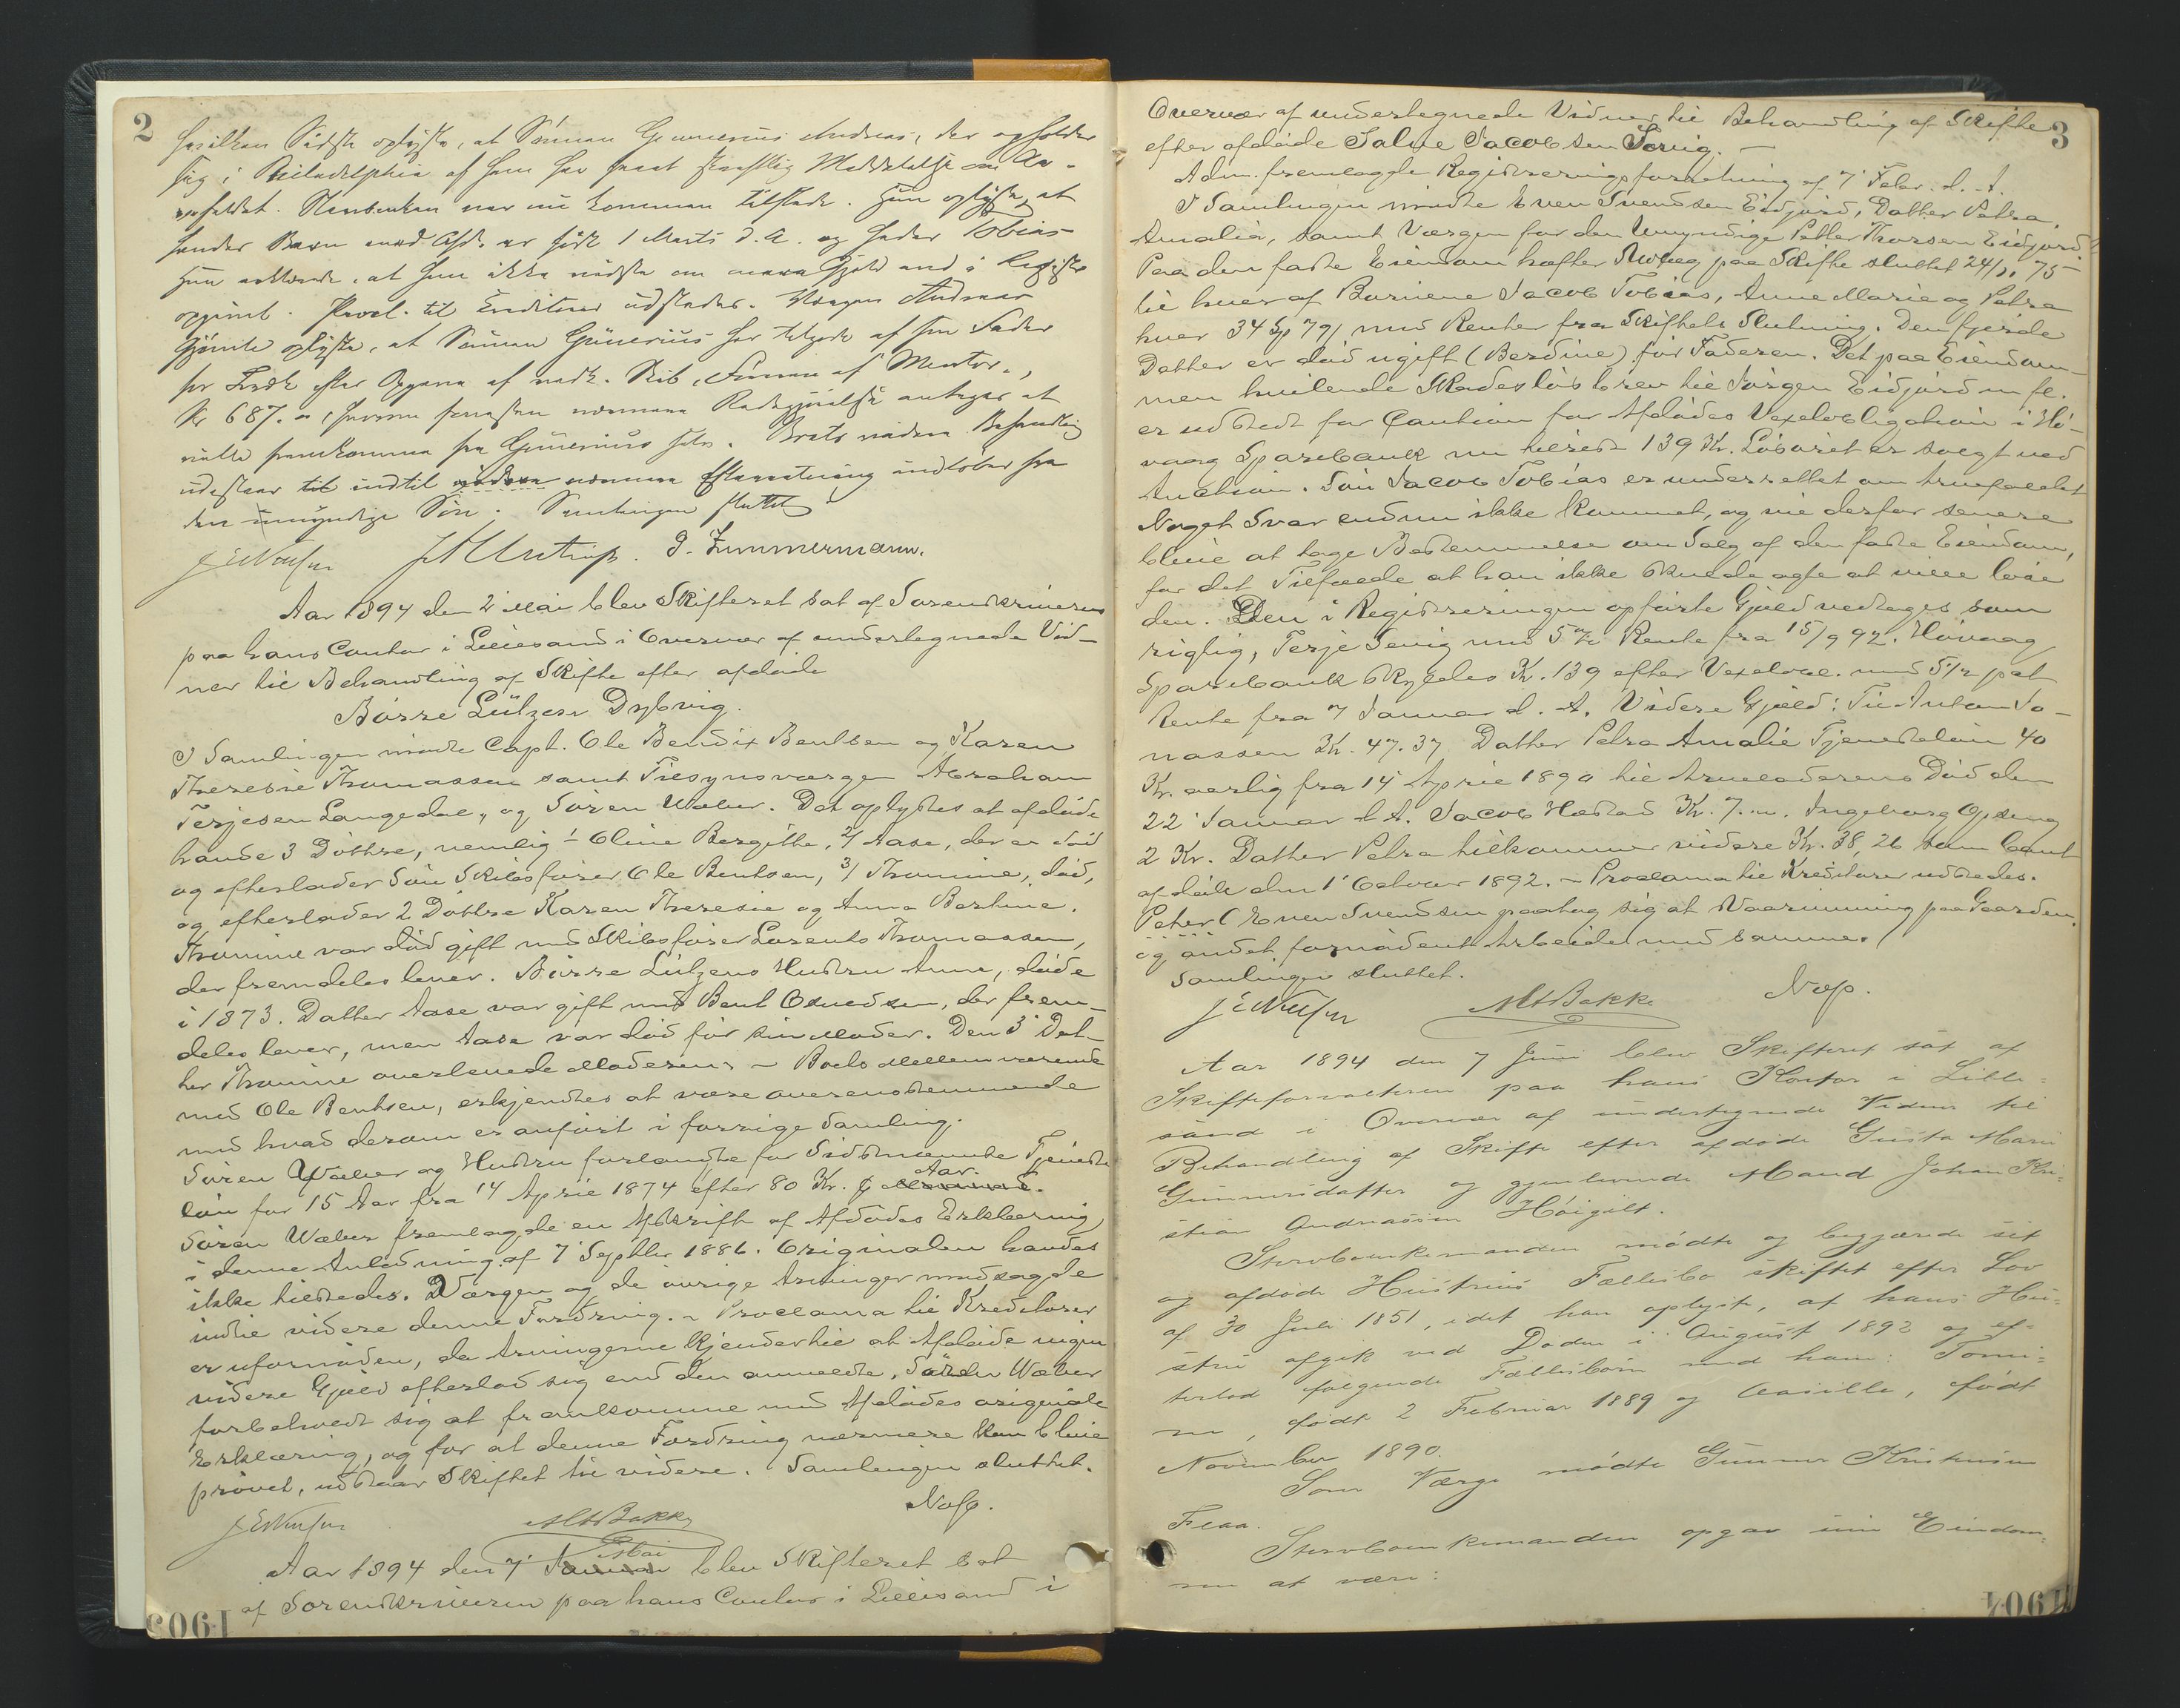 2
hvilken Sidste oplyste, at Sönnen Gunnerius Andreas, der opholder
sig i Philadelphia af ham har faaet skriftlig Meddelelse om Dö-
dsfaldet. Stervbenken var nu kommen tilstede. Hun oplyste, at
hendes Barn med Afd. er född 1 Marts d. A. og heder Tobias
Hun erklærede, at hun ikke vidste om mere Gjæld end i Registr.
opgivet. Procl. til Creditorer udstedes. Værgen Andreas
Gjömle oplyste, at Sönnen Gunerius har tilgode af sin Fader
for Fragt efter Opgave af nedl. Skib,
Kr 687. hvorom forresten nærmere Redegjörelse antages at
ville fremkomme fra Gunerius selv. Boets videre Behandling
udestaar til indtil videre nærmere Efterretning indlöber fra
den umyndige Sön. Samlingen sluttet
J. Zimmermann.
Aar 1894 den 2 Mai blev Skifteret sat af Sorenskriveren
paa hans Contor i Lillesand i Overvær af undertegnede Vid-
ner til Behandling af Skifte efter afdöde
Börre Lützen Dybvig.
I Samlingen mödte Capt. Ole Bendix Bentsen og Karen
Theresie Thomassen samt Tilsynsværgen Abraham
Terjesen Langedal, og Sören Wæber. Det oplystes at afdöde
havde 3 Döttre, nemlig 1/ Oline Bergitte, 2/ Aase, der er död
og efterlader Sön Skibsförer Ole Bentsen, 3/ Thomine, död,
og efterlader 2 Döttre Karen Theresie og Anna Bertine.
Thomine var död gift med Skibsförer Lorents Thomassen,
der fremdeles lever. Börre Lützens Hustru Anne, döde
i 1873. Datter Aase var gift med Bent Osuldsen, der frem-
deles lever, men Aase var död för sin Moder. Den 3' Dat-
ter Thomine overlevede Moderen. - Boets Mellemværende
med Ole Bentsen, erkjendtes at være overensstemmende
med hvad derom er anfört i forrige Samling.
Sören Wæber og Hustru forlangte for Sidstnævnte Tjeneste
lön for 15 Aar fra 14 April 1874 efter 80 Kr. p Aar.
Sören Wæber fremlagde en Afskrift af Afdödes Erklæring
i denne Anledning af 7 Septbr 1886. Originalen havdes
ikke tilstede. Værgen og de övrige Arvinger modsagde
indtil videre denne Fordring. - Proclama til Kreditorer
er ufornöden, da Arvingerne kjender til at Afdöde ingen
videre Gjæld efterlod sig end den anmeldte. Sören Wæber
forbeholdt sig at fremkomme med Afdödes originale
Erklæring, og for at denne Fordring nærmere kan blive
prövet, udstaar Skiftet til videre. Samlingen sluttet.
Nøp.
MABakke
Aar 1894 den 7' Januar Mai blev Skifteret sat
af Sorenskriveren paa hans Contor i Lillesand i
1903
3
Overvær af undertegnede Vidner til Behandling af Skifte
efter afdöde Salve Jacobsen Törvig. -
Adm. fremlagde Registreringsforretning af 7' Febr. d. A.
I Samlingen mödte Even Svendsen Eidjord, Datter Petra
Amalia, samt Værgen for den Umyndige Petter Thorsen Eidjord.
Paa den faste Eiendom hæfter Udlæg paa Skifte sluttet 24/11 75
til hver af Börnene Jacob Tobias, Anne Marie og Petra
hver 34 Sp 79/ med Renter fra Skiftets Slutning. Den fjerde
Datter er död ugift (Berdine) för Faderen. Det paa Eiendom-
men hvilende Skadeslösbrev til Jörgen Eidjord m fl.
er udstedt for Caution for Afdödes Vexelobligation i Hö-
vaag Sparebank nu tilrest 139 Kr. Lösöret er solgt ved
Auction. Sön Jacob Tobias er underrettet om Arvefaldet
Noget Svar endnu ikke kommet, og vil derfor senere
blive at tage Bestemmelse om Salg af den faste Eiendom,
for det Tilfælde at han ikke skulde agte at ville löse
den. Den i Registreringen opförte Gjæld vedtages som
rigtig, Terje Sevig med 5 % Rente fra 15/9 92. Hövaag
Sparebank skyldes Kr. 139 efter Vexelobl. med 5 1/2 pct
Rente fra 7 Januar d. A. Videre Gjæld: Til Anton Jo-
nassen Kr. 47. 37 Datter Petra Amalie Tjenestelön 40
Kr. aarlig fra 14' April 1890 til Arveladerens Död den
22' Januar d A. Jacob Hæstad Kr. 7. Ingeborg
2 Kr. Datter Petra tilkommer videre Kr. 38, 26 som laant
afdöde den 1' October 1892. - Proclama til Kreditorer udstedes.
Peter (Even Svendsen paatog sig at Vaaronning paa Gaarden.
og andet fornödent Arbeide med samme.
Samlingen sluttet.
MABakke
Nøp.
Aar 1894 den 7 Juni blev Skifteret sat af
Skifteforvalteren paa hans Kontor i Lille-
sand i Overvær af undertegnede Vidner til
Behandling af Skifte efter afdöde Gusta Marie
Gunnersdatter og gjenlevende Mand Johan Kri-
stian Andreassen Höigilt.
Stervboenkemanden mödte og begjærede sit
og afdöde Hustrus Fællesbo skiftet efter Lov
af 30 Juli 1851, idet han oplyste, at hans Hu-
stru afgik ved Döden i August 1892 og ef-
terlod fölgende Fællesbörn med ham: Tomi-
ne, födt 2 Februar 1889 og Camille, födt
November 1890.
Som Værge mödte Gunner Kristensen
Flaa.
Stervboenkemanden opgav sin Eiendom-
me at være:
1904